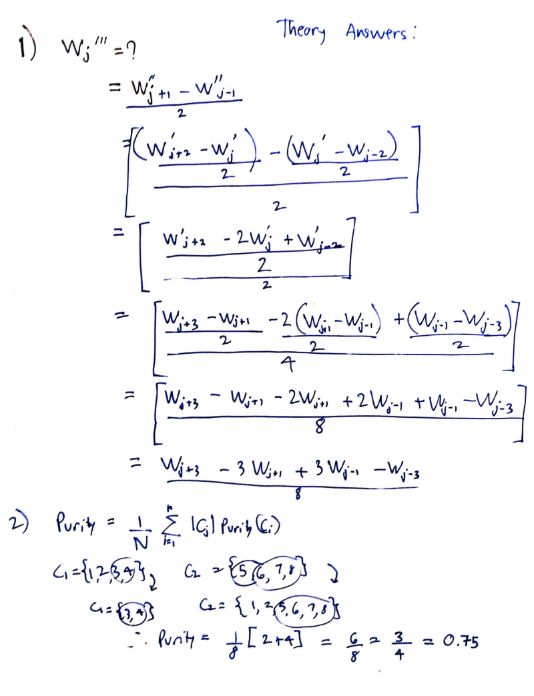 Theory Answers:
1) Wj''' = ?
= W''j+1 - W''j-1 / 2
= [ (W'j+2 - W'j) / 2 - (Wj' - Wj-2) / 2 ] / 2
= [ W'j+2 - 2W'j + W'j-2 / 2 ] / 2
= [ Wj+3 - Wj+1 / 2 - 2(Wj+1 - Wj-1) / 2 + (Wj-1 - Wj-3) / 2 ] / 4
= [ Wj+3 - Wj+1 - 2Wj+1 + 2Wj-1 + Wj-1 - Wj-3 ] / 8
= Wj+3 - 3Wj+1 + 3Wj-1 - Wj-3 / 8
2) Purity = 1/N Σ i=1 |Ci| Purity(Ci)
C1={1,2,3,4}, C2 = {5,6,7,8}
C1={3,4} C2= {1,2,5,6,7,8}
∴ Purity = 1/8 [2+4] = 6/8 = 3/4 = 0.75